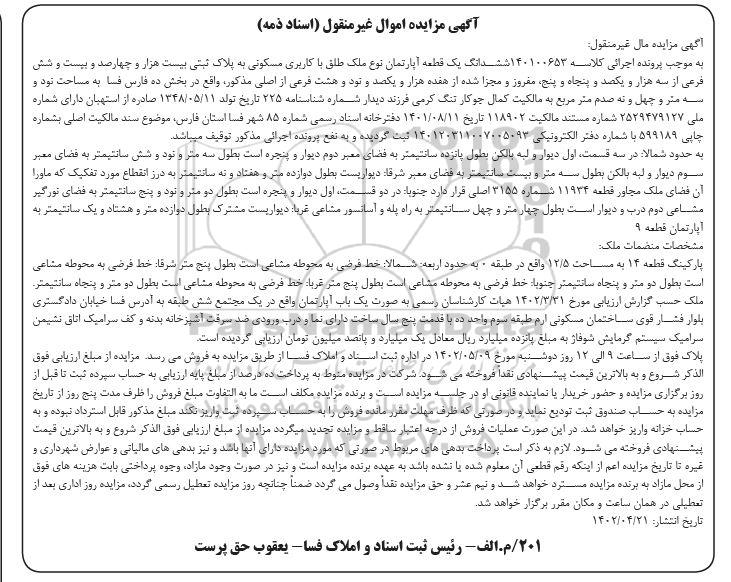 آگهی مزایده اموال غیرمنقول (اسناد ذمه)
آگهی مزایده مال غیرمنقول:
به موجب پرونده اجرائی کلاسه ۱۴۰۱۰۰۶۵۳ششدانگ یک قطعه آپارتمان نوع ملک طلق با کاربری مسکونی به پلاک ثبتی بیست هزار و چهارصد و بیست و شش
فرعی از سه هزار و یکصد و پنجاه و پنج، مفروز و مجزا شده از هفده هزار و یکصد و نود و هشت فرعی از اصلی مذکور، واقع در بخش ده فارس فسا به مساحت نود و
سه متر و چهل و نه صدم متر مربع به مالکیت کمال جوکار تنگ کرمی فرزند دیدار شماره شناسنامه ۲۲۵ تاریخ تولد ۱۳۴۸/۰۵/۱۱ صادره از استهبان دارای شماره
ملی ۲۵۲۹۴۷۹۱۲۷ شماره مستند مالکیت ۱۱۸۹۰۲ تاریخ ۱۴۰۱/۰۸/۱۱ دفترخانه اسناد رسمی شماره ۸۵ شهر فسا استان فارس، موضوع سند مالکیت اصلی بشماره
چاپی ۵۹۹۱۸۹ با شماره دفتر الکترونیکی ۱۴۰۱۲۰۳۱۱۰۰۷۰۰۵۰۹۳ ثبت گردیده و به نفع پرونده اجرائی مذکور توقیف میباشد.
به حدود شمالا: در سه قسمت، اول دیوار و لبه بالکن بطول پانزده سانتیمتر به فضای معبر دوم دیوار و پنجره است بطول سه متر و نود و شش سانتیمتر به فضای معبر
سوم دیوار و لبه بالکن بطول سه متر و بیست سانتیمتر به فضای معبر شرقا: دیواریست بطول دوازده متر و هفتاد و نه سانتیمتر به درز انقطاع مورد تفکیک که ماورا
آن فضای ملک مجاور قطعه ۱۱۹۳۴ شماره ۳۱۵۵ اصلی قرار دارد جنوبا: در دو قسمت، اول دیوار و پنجره است بطول دو متر و نود و پنج سانتیمتر به فضای نورگیر
مشاعی دوم درب و دیوار است بطول چهار متر و چهل سانتیمتر به راه پله و آسانسور مشاعی غربا: دیواریست مشترک بطول دوازده متر و هشتاد و یک سانتیمتر به
آپارتمان قطعه ۹
مشخصات منضمات ملک:
پارکینگ قطعه ۱۴ به مساحت ۱۲/۵ واقع در طبقه ۰ به حدود اربعه: شمالا: خط فرضی به محوطه مشاعی است بطول پنج متر شرقا: خط فرضی به محوطه مشاعی
است بطول دو متر و پنجاه سانتیمتر جنوبا: خط فرضی به محوطه مشاعی است بطول پنج متر غربا: خط فرضی به محوطه مشاعی است بطول دو متر و پنجاه سانتیمتر.
ملک حسب گزارش ارزیابی مورخ ۱۴۰۲/۳/۳۱ هیات کارشناسان رسمی به صورت یک باب آپارتمان واقع در یک مجتمع شش طبقه به آدرس فسا خیابان دادگستری
بلوار فشار قوی ساختمان مسکونی ارم طبقه سوم واحد ده با قدمت پنج سال ساخت دارای نما و درب ورودی ضد سرقت آشپزخانه بدنه و کف سرامیک اتاق نشیمن
سرامیک سیستم گرمایش شوفاژ به مبلغ پانزده میلیارد ریال معادل یک میلیارد و پانصد میلیون تومان ارزیابی گردیده است.
پلاک فوق از ساعت ۹ الی ۱۲ روز دوشنبه مورخ ۱۴۰۲/۰۵/۰۹ در اداره ثبت اسناد و املاک فسا از طریق مزایده به فروش می رسد. مزایده از مبلغ ارزیابی فوق
الذکر شروع و به بالاترین قیمت پیشنهادی نقداً فروخته می شود. شرکت در مزایده منوط به پرداخت ده درصد از مبلغ پایه ارزیابی به حساب سپرده ثبت تا قبل از
روز برگزاری مزایده و حضور خریدار یا نماینده قانونی او در جلسه مزایده است و برنده مزایده مکلف است ما به التفاوت مبلغ فروش را ظرف مدت پنج روز از تاریخ
مزایده به حساب صندوق ثبت تودیع نماید و در صورتی که ظرف مهلت مقرر مانده فروش را به حساب سپرده ثبت واریز نکند مبلغ مذکور قابل استرداد نبوده و به
حساب خزانه واریز خواهد شد. در این صورت عملیات فروش از درجه اعتبار ساقط و مزایده تجدید میگردد مزایده از مبلغ ارزیابی فوق الذکر شروع و به بالاترین قیمت
پیشنهادی فروخته می شود. لازم به ذکر است پرداخت بدهی های مربوط در صورتی که مورد مزایده دارای آنها باشد و نیز بدهی های مالیاتی و عوارض شهرداری و
غیره تا تاریخ مزایده اعم از اینکه رقم قطعی آن معلوم شده یا نشده باشد به عهده برنده مزایده است و نیز در صورت وجود مازاد، وجوه پرداختی بابت هزینه های فوق
از محل مازاد به برنده مزایده مسترد خواهد شد و نیم عشر و حق مزایده نقداً وصول می گردد ضمناً چنانچه روز مزایده تعطیل رسمی گردد، مزایده روز اداری بعد از
تعطیلی در همان ساعت و مکان مقرر برگزار خواهد شد.
تاریخ انتشار: ۱۴۰۲/۰۴/۲۱
۲۰۱/م.الف- رئیس ثبت اسناد و املاک فسا- یعقوب حق پرست